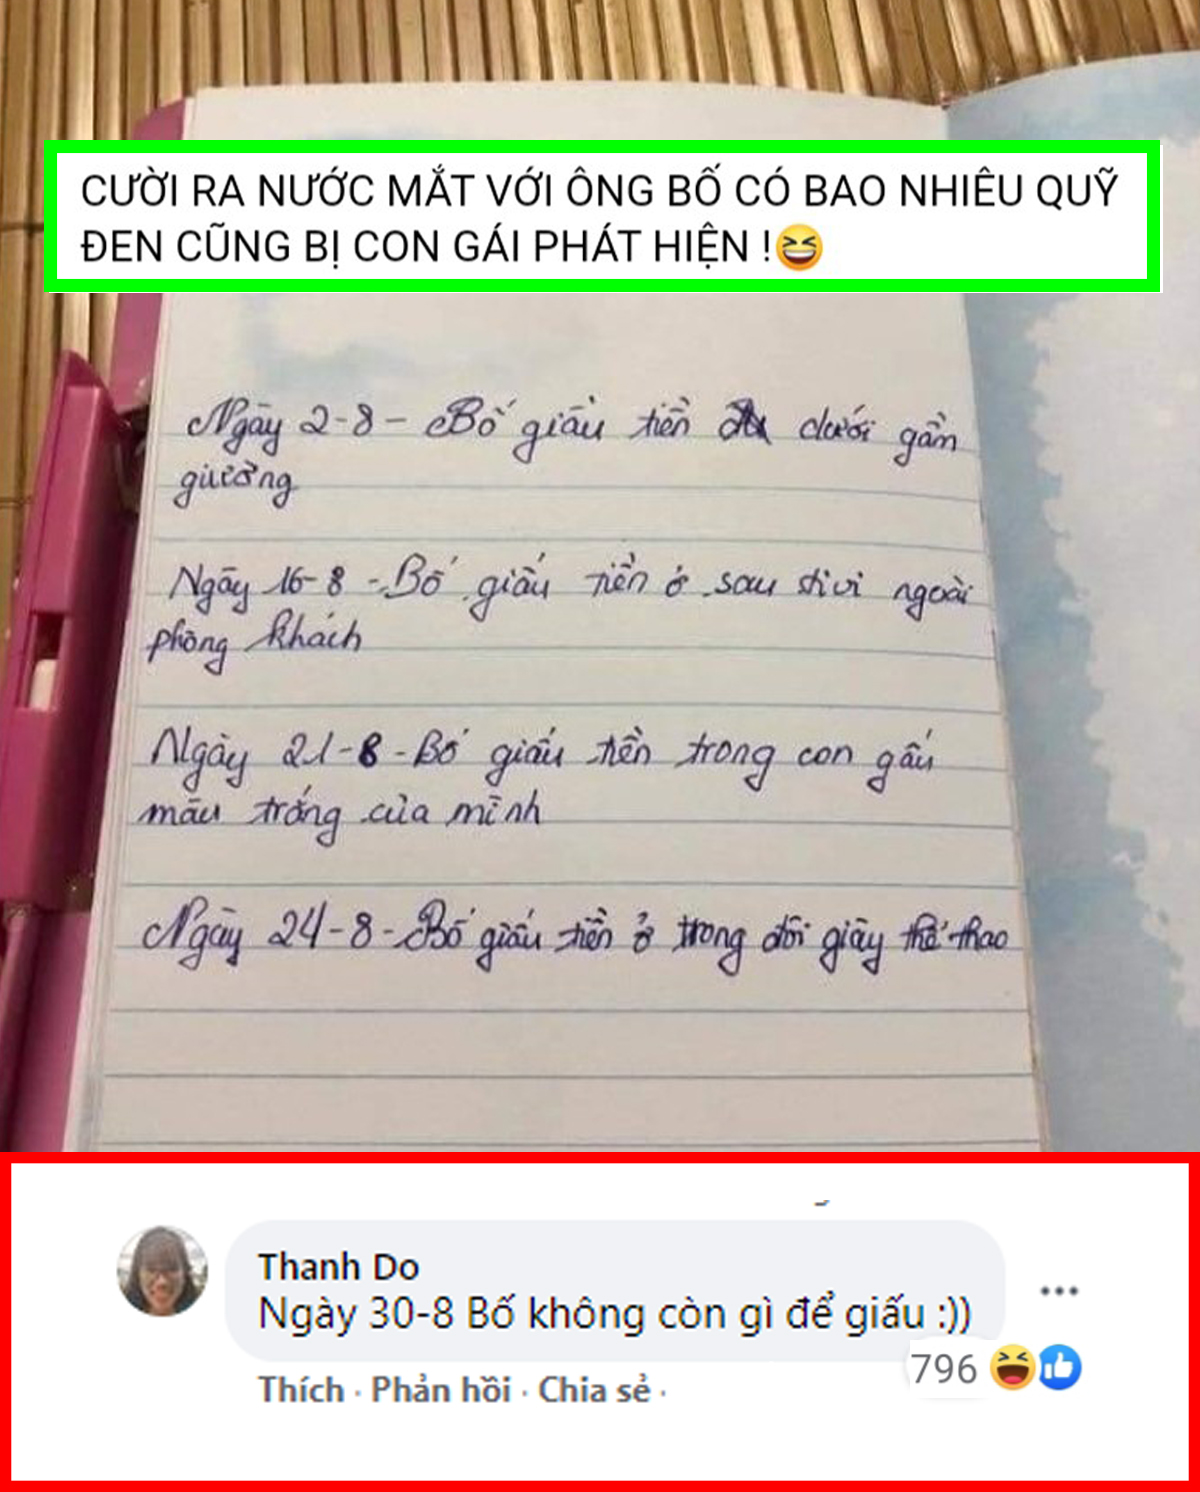 CƯỜI RA NƯỚC MẮT VỚI ÔNG BỐ CÓ BAO NHIÊU QUỸ
ĐEN CŨNG BỊ CON GÁI PHÁT HIỆN !😆
Ngày 2-8 - Bố giấu tiền dưới gầm
giường
Ngày 16-8 - Bố giấu tiền ở sau tivi ngoài
phòng khách
Ngày 21-8 - Bố giấu tiền trong con gấu
màu trắng của mình
Ngày 24-8 - Bố giấu tiền ở trong đôi giày thể thao
Thanh Do
Ngày 30-8 Bố không còn gì để giấu :))
796
Thích · Phản hồi · Chia sẻ ·